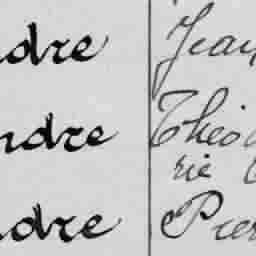 ndre Jean
ndre Théod
rie
ndre Pier